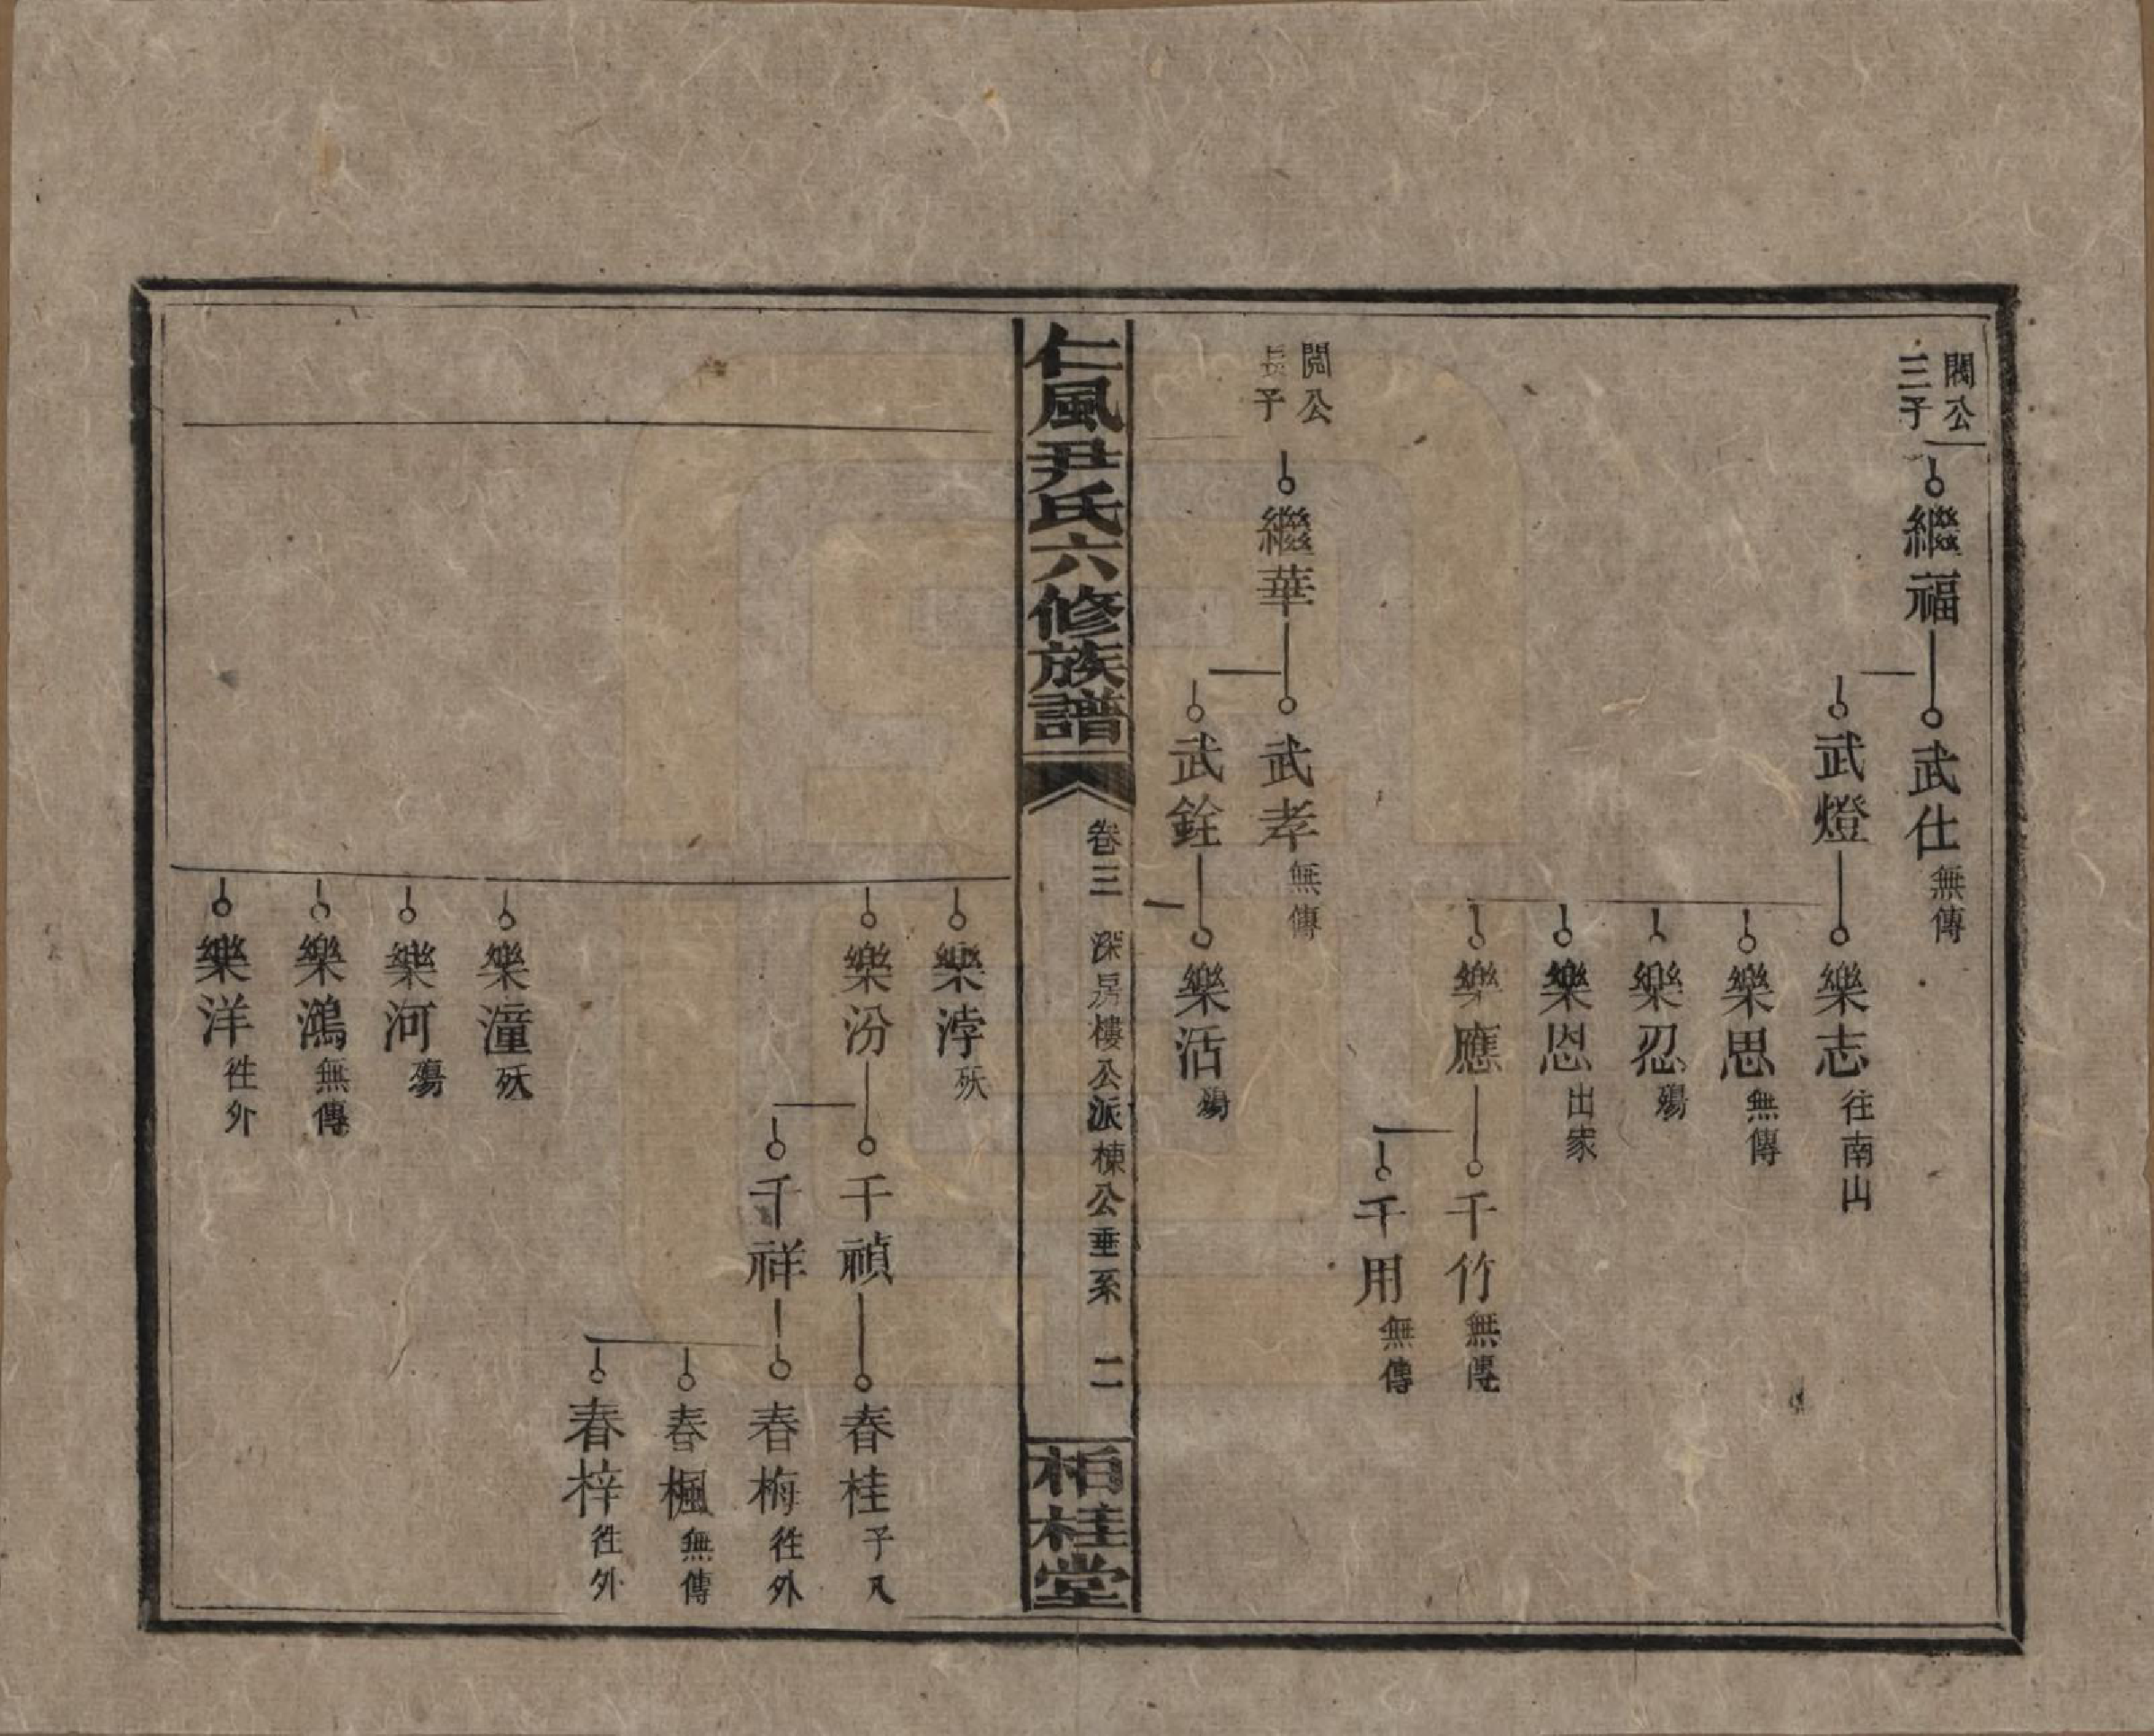 閣公
三子
繼福
武仕無傳
武燈
樂志往南山
樂思無傳
樂忍殤
樂恩出家
樂應
千竹無傳
千用無傳
閲公
長子
繼華
武孝無傳
武銓
樂活殤
仁風尹氏六修族譜
卷三 深房樓公派棟公垂系 二
柏桂堂
樂浡殀
樂汾
千禎
春桂子八
千祥
春梅徃外
春楓無傳
春梓徃外
樂潼殀
樂河殤
樂鴻無傳
樂洋徃外